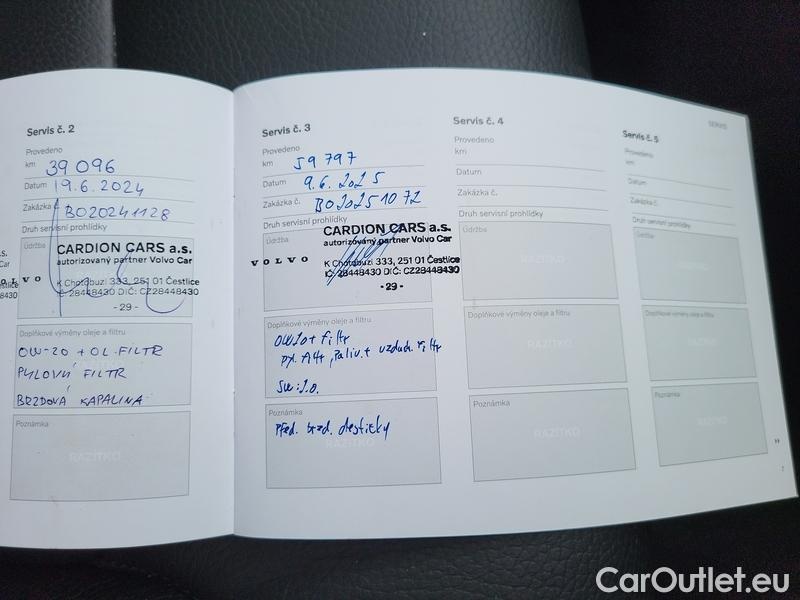 Servis č. 2
Provedeno
km 39 096
Datum 19.6.2024
Zakázka č. BO20241128
Druh servisní prohlídky
Údržba
CARDION CARS a.s.
autorizovaný partner Volvo Car
VOLVO
K Chotobuzi 333, 251 01 Čestlice
IČ: 28448430 DIČ: CZ28448430
- 29 -
Doplňkové výměny oleje a filtru
OW-20 + OL. FILTR
PYLOVÝ FILTR
BRZDOVÁ KAPALINA
Poznámka
RAZÍTKO
Servis č. 3
Provedeno
km 59 797
Datum 9.6.2025
Zakázka č. BO20251072
Druh servisní prohlídky
Údržba
CARDION CARS a.s.
autorizovaný partner Volvo Car
VOLVO
K Chotobuzi 333, 251 01 Čestlice
IČ: 28448430 DIČ: CZ28448430
- 29 -
Doplňkové výměny oleje a filtru
OW20 + filtr
Poznámka
Před. brzd. destičky
RAZÍTKO
Servis č. 4
Provedeno
km
Datum
Zakázka č.
Druh servisní prohlídky
Údržba
RAZÍTKO
Doplňkové výměny oleje a filtru
RAZÍTKO
Poznámka
RAZÍTKO
SERVIS
Servis č. 5
Provedeno
km
Datum
Zakázka č.
Druh servisní prohlídky
Údržba
RAZÍTKO
Doplňkové výměny oleje a filtru
RAZÍTKO
Poznámka
RAZÍTKO
CarOutlet.eu